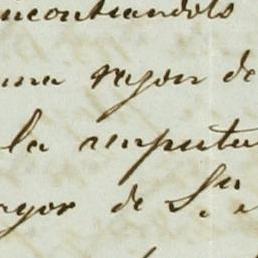 ncontrandolo
una rejon de
la amputa
ayor de Sn.